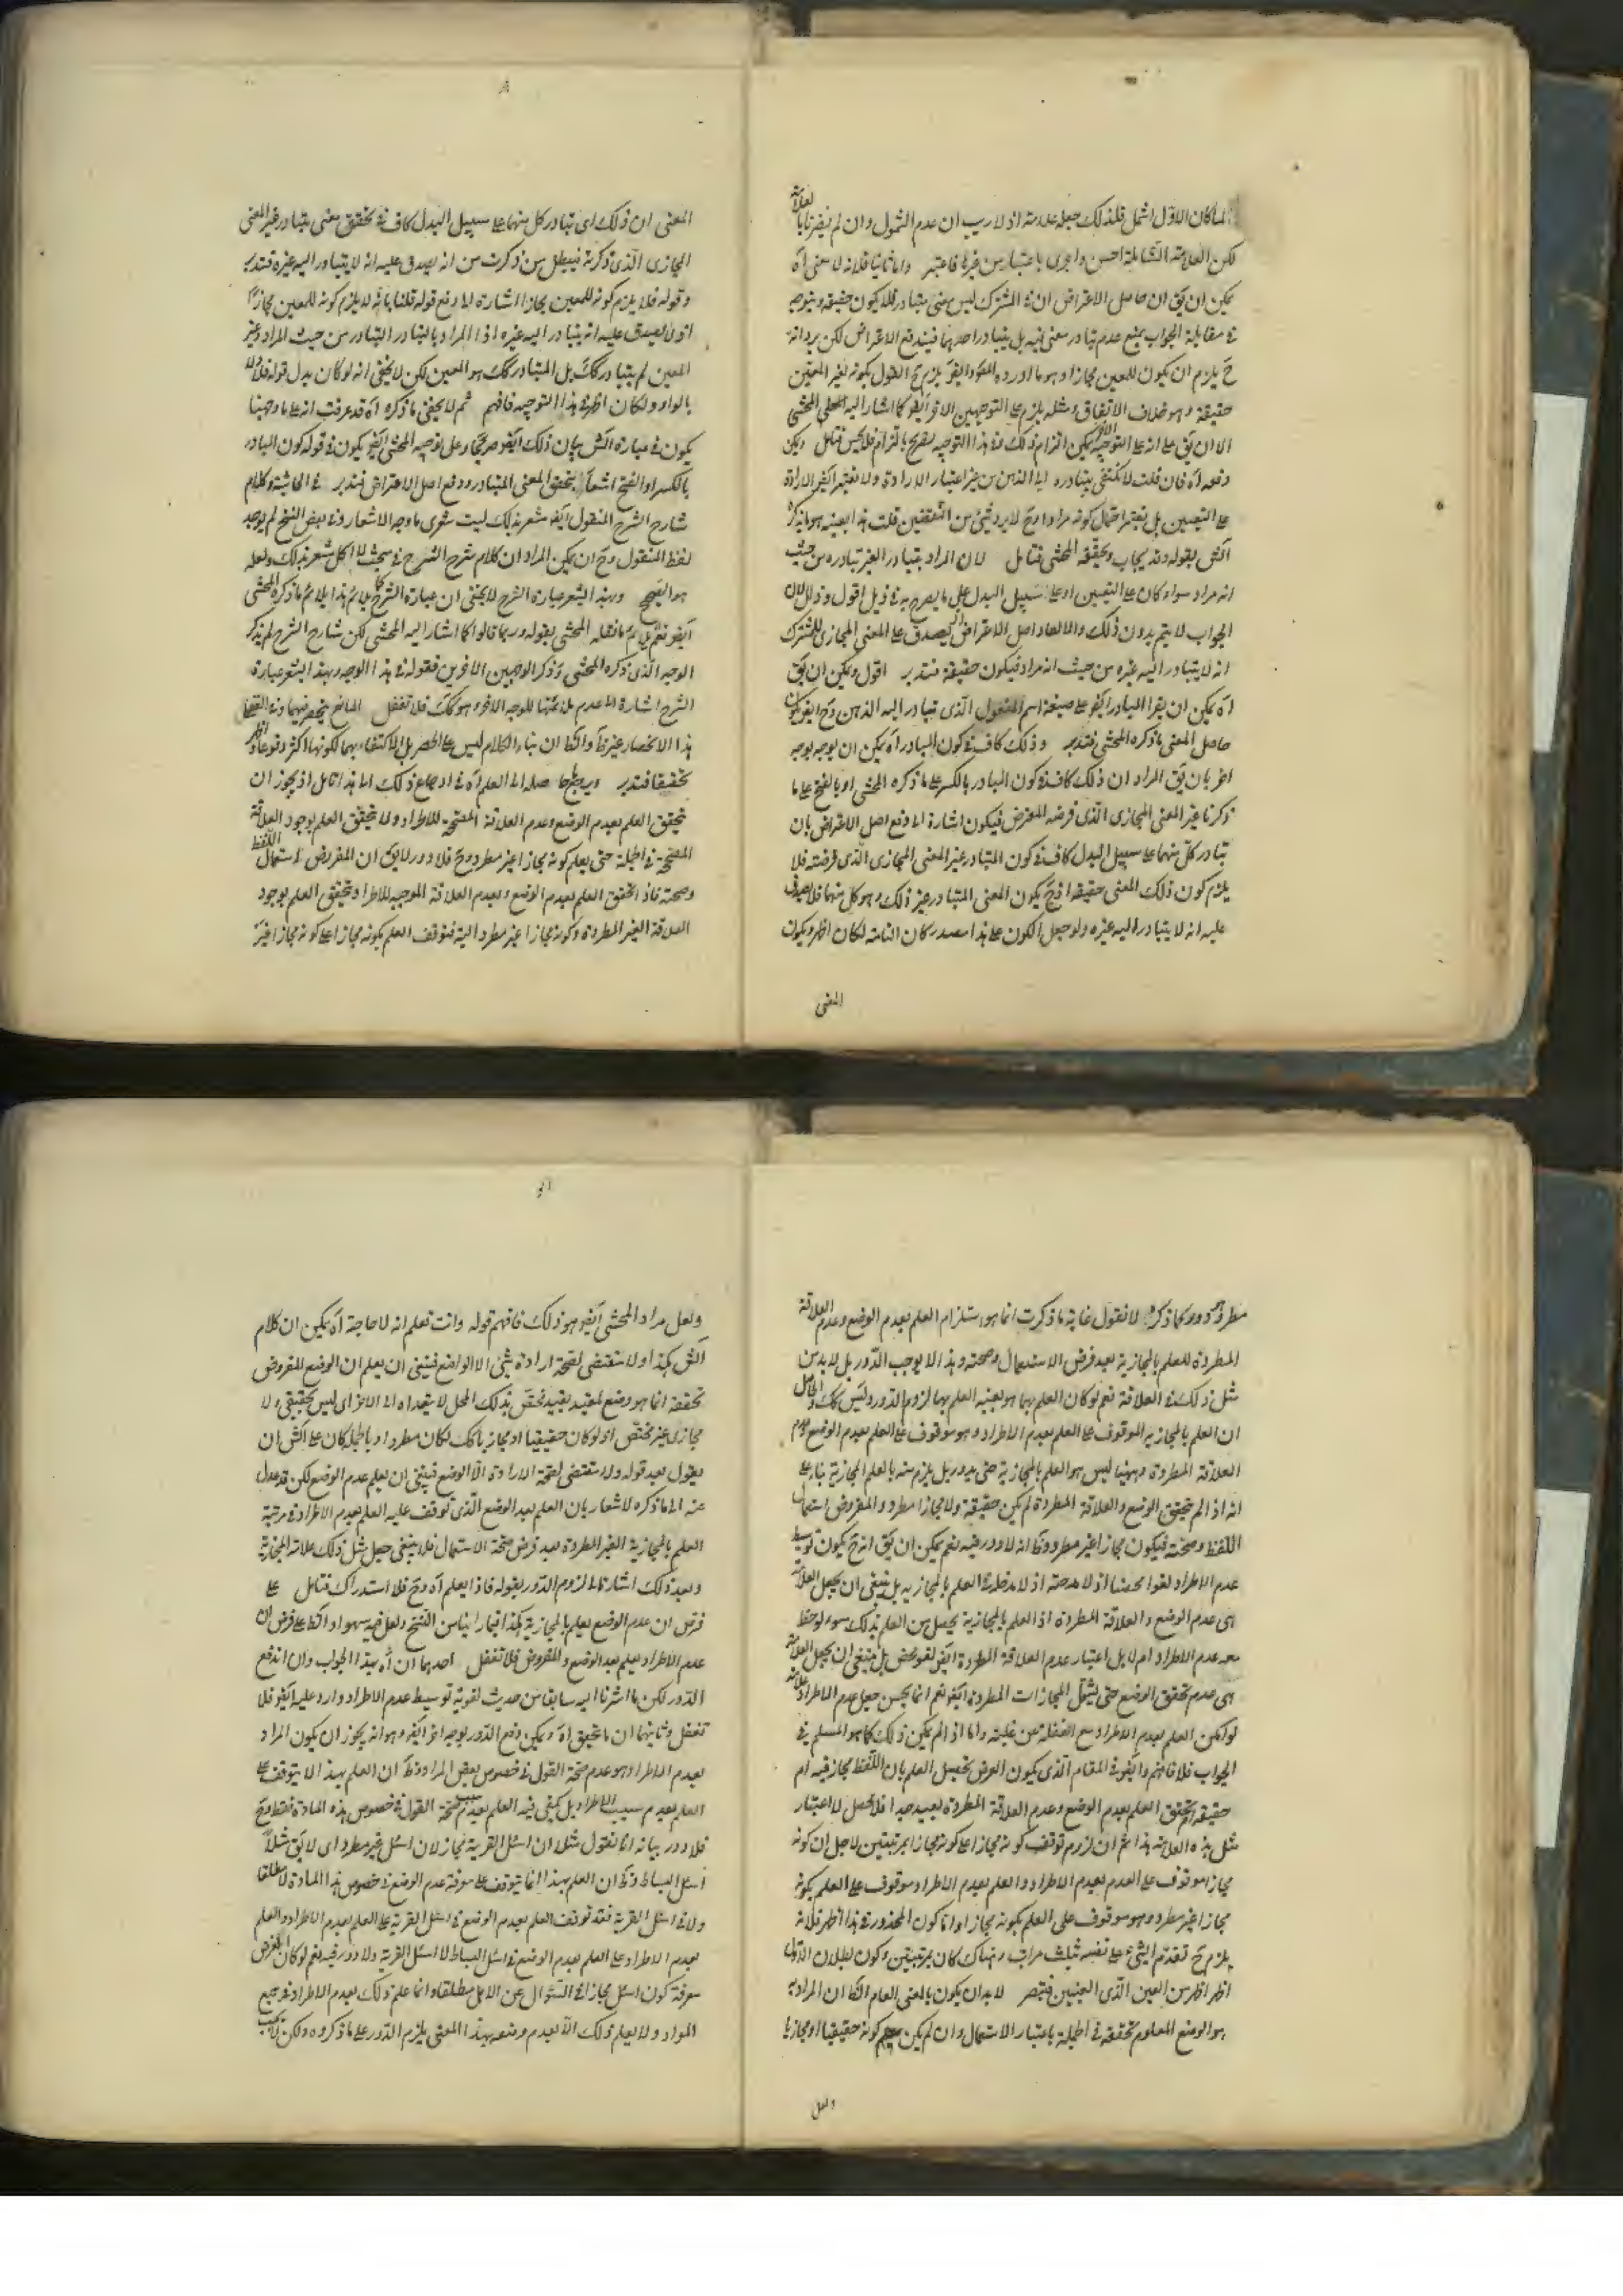 لما كان الاول اشمل فلذلك جعله علامة اذ لا ريب ان عدم الشمول وان لم يضر
لكن العلامة الشاملة احسن واحرى باعتبار من غيرها فاعتبر واما ثانيا فلانه لا معنى اه
يمكن ان يق ان حاصل الاعتراض ان في المشترك ليس معنى يتبادر فلا يكون حقيقة ويتوجه
في مقابلة الجواب بمنع عدم تبادر معنى فيه بل يتبادر احدهما فيندفع الاعتراض لكن يرد انه
ح يلزم ان يكون للمعين مجازا وهو ما اورده بقوله يلزم ح القول بكونه لغير المعين
حقيقة وهو خلاف الاتفاق ومثله يلزم على التوجيهين الاخر ايضو كما اشار اليه المحشى
الا ان يق على انه على التوجيه يمكن التزام ذلك وفي هذا التوجيه يصرح بالتزام فلا يحسن فتامل ويمكن
دفعه اه فان قلت لا نكتفى بتبادره الى الذهن من غير اعتبار الارادة ولا نعتبر ايضو الارادة
على التعيين بل نعتبر احتمال كونه مرادا وح لا يرد شئ من النقضين قلت هذا بعينه هو ما ذكره
الش بقوله وقد يجاب وحققه المحشى فتامل لان المراد بتبادر الغير تبادره من حيث
انه مراد سواء كان على التعيين او على سبيل البدل على ما يصرح به في ذيل اقول وذلك لان
الجواب لا يتم بدون ذلك والا لعاد اصل الاعتراض اذ يصدق على المعنى المجازى للمشترك
انه لا يتبادر اليه غيره من حيث انه مراد فيكون حقيقة فتدبر اقول ويمكن ان يق
اه يمكن ان يقرا المبادر ايضو على صيغة اسم المفعول الذى تبادر اليه الذهن وح ايضو يكون
حاصل المعنى ما ذكره المحشى فتدبر وذلك كاف في كون المبادر اه يمكن ان يوجه بوجه
اخر بان يق المراد ان ذلك كاف في كون المبادر بالكسر على ما ذكره المحشى او بالفتح على ما
ذكرنا غير المعنى المجازى الذى فرضه المعترض فيكون اشارة الى دفع اصل الاعتراض بان
تبادر كل منهما على سبيل البدل كاف في كون المتبادر غير المعنى المجازى الذى فرضته فلا
يلزم كون ذلك المعنى حقيقة اذ ح يكون المعنى المتبادر غير ذلك وهو كل منهما فلا يصدق
عليه انه لا يتبادر اليه غيره ولو جعل الكون على هذا مصدر كان التامة لكان اظهر ويكون
المعنى
المعنى ان ذلك اى تبادر كل منهما على سبيل البدل كاف في تحقق معنى يتبادر غير المعنى
المجازى الذى ذكرته فيبطل من ذكرت من انه يصدق عليه انه لا يتبادر اليه غيره فتدبر
وقوله فلا يلزم كونه للمعين مجازا اشارة الى دفع قوله قلنا بانه لا يلزم كونه للمعين مجازا
اذ لا يصدق عليه انه يتبادر اليه غيره اذ المراد بالتبادر التبادر من حيث المراد وغير
المعين لم يتبادر كك بل المتبادر كك هو المعين لكن لا يخفى انه لو كان بدل قوله فلا
بالواو ولكان اظهر في هذا التوجيه فافهم ثم لا يخفى ما ذكره اه قد عرفت انه على ما وجهنا
يكون في عبارة الش بيان ذلك ايضو صريحا وعلى توجيه المحشى ايضو يكون في قوله كون المبادر
بالكسر او الفتح اشعار بتحقق المعنى المتبادر ودفع اصل الاعتراض فتدبر في الحاشية وكلام
شارح الشرح المنقول ايضو مشعر بذلك ليت شعرى ما وجه الاشعار وفي بعض النسخ لم يوجد
لفظ المنقول وح ان يمكن المراد ان كلام شرح الشرح في مبحث لا كل مشعر بذلك ولعله
هو الصحيح وبهذا يشعر عبارة الشرح لا يخفى ان عبارة الشرح كما يلائم هذا يلائم ما ذكره المحشى
ايضو نعم يلائم ما نقله المحشى بقوله وربما قالوا كما اشار اليه المحشى لكن شارح الشرح لم يذكر
الوجه الذى ذكره المحشى وذكر الوجهين الاخرين فقوله في هذا الوجه وبهذا يشعر عبارة
الشرح اشارة الى عدم ملائمتها للوجه الاخر وهو كك فلا تغفل المانع ينحصر فيهما
هذا الانحصار غير ظ والظ ان بناء الكلام ليس على الحصر بل الاكتفاء بهما لكونهما اكثر وقوعا
تحقيقا فتدبر ويرجع حاصله الى العلم اه في ارجاع ذلك الى هذا تامل اذ يجوز ان
يتحقق العلم بعدم الوضع وعدم العلاقة المصححة للاطراد ولا يتحقق العلم بوجود العلاقة
المصححة في الجملة حتى يعلم كونه مجازا غير مطرد وح فلا دور لا يق ان المفروض استعمال اللفظ
وصحته فاذا تحقق العلم بعدم الوضع وبعدم العلاقة الموجبة للاطراد وتحقق العلم بوجود
العلاقة الغير المطردة وكونه مجازا غير مطرد البتة فتوقف العلم بكونه مجازا على كونه مجازا غير
مطرد دور كما ذكره لانا نقول غاية ما ذكرت انما هو استلزام العلم بعدم الوضع وعدم العلاقة
المطردة للعلم بالمجازية بعد فرض الاستعمال وصحته وهذا لا يوجب الدور بل لا بد من
مثل ذلك في العلاقة نعم لو كان العلم بهما هو بعينه العلم بها لزم الدور وليس كك والحاصل
ان العلم بالمجازية الموقوف على العلم بعدم الاطراد وهو موقوف على العلم بعدم الوضع وعدم
العلاقة المطردة وههنا ليس هو العلم بالمجازية حتى يدور بل يلزم منه بالعلم المجازية بناء على
انه اذا لم يتحقق الوضع والعلاقة المطردة لم يكن حقيقة ولا مجازا مطردا والمفروض استعمال
اللفظ وصحته فيكون مجازا غير مطرد وظ انه لا دور فيه نعم يمكن ان يق انه ح يكون توسيط
عدم الاطراد لغوا محضا اذ لا مدخل له في العلم بالمجازية بل ينبغى ان يجعل العلامة
هى عدم الوضع والعلاقة المطردة اذ العلم بالمجازية يحصل من العلم بذلك سواء لوحظ
معه عدم الاطراد ام لا بل اعتبار عدم العلاقة المطردة ايضو لغو محض بل ينبغى ان يجعل العلامة
هى عدم تحقق الوضع حتى يشمل المجازات المطردة ايضو نعم انما يحسن جعل عدم الاطراد علامة
لو امكن العلم بعدم الاطراد مع الغفلة عن علته واما اذا لم يكن ذلك كما هو المسلم في
الجواب فلا فافهم وايضو في المقام الذى يكون الغرض تحصيل العلم بان اللفظ مجاز فيه ام
حقيقة تحقق العلم بعدم الوضع وعدم العلاقة المطردة بعيد جدا فلا يحصل لاعتبار
مثل هذه العلامة هذا ثم ان لزوم توقف كونه مجازا على كونه مجازا بمرتبتين لاجل ان كونه
مجازا موقوف على العدم بعدم الاطراد والعلم بعدم الاطراد موقوف على العلم بكونه
مجازا غير مطرد وهو موقوف على العلم بكونه مجازا واما كون المحذور في هذا اظهر فلانه
يلزم ح تقدم الشئ على نفسه بثلث مراتب وهناك كان بمرتبتين وكون بطلان الاول
اظهر اظهر من العين الذى العينين فتبصر لا بد ان يكون بالمعنى العام الظ ان المراد به
هو الوضع المعلوم تحققه في الجملة باعتبار الاستعمال وان لم يكن كونه حقيقيا او مجازيا
ولعل
ولعل مراد المحشى ايضو هو ذلك فافهم قوله وانت تعلم انه لا حاجة اه يمكن ان كلام
الش هكذا ولا مقتضى لصحة ارادة شئ الا الوضع فينبغى ان يعلم ان الوضع المفروض
تحققه انما هو وضع لمقيد بقيد يختص بذلك المحل لا يتعداه الى الاخر اى ليس بحقيقى ولا
مجازى غير مختص اذ لو كان حقيقيا او مجازيا كك لكان مطردا وبالجملة كان على الش ان
يقول بعد قوله ولا مقتضى لصحة الارادة الا الوضع فينبغى ان يعلم عدم الوضع لكن قد عدل
عنه الى ما ذكره لاشعار بان العلم بعدم الوضع الذى توقف عليه العلم بعدم الاطراد في مرتبة
العلم بالمجازية الغير المطردة بعد فرض صحة الاستعمال فلا ينبغى جعل مثل ذلك علامة المجازية
وبعد ذلك اشار الى لزوم الدور بقوله فاذا يعلم اه وح فلا استدراك فتامل على
فرض ان عدم الوضع يعلم بالمجازية هكذا فيما راينا من النسخ ولعل فيه سهوا والظ على فرض ان
عدم الاطراد يعلم بعدم الوضع والمفروض فلا تغفل احدهما ان اه هذا الجواب وان اندفع
الدور لكن ما اشرنا اليه سابقا من حديث لغوية توسيط عدم الاطراد وارد عليه ايضو فلا
تغفل وثانيهما ان ما تحقق اه ويمكن دفع الدور بوجه اخر ايضو وهو انه يجوز ان يكون المراد
بعدم الاطراد هو عدم صحة القول في خصوص بعض المواد وظ ان العلم بهذا لا يتوقف على
العلم بعدم سبب الاطراد بل يكفى فيه العلم بعدم سبب صحة القول في خصوص هذه المادة فقط وح
فلا دور بيانه انا نقول مثلا ان اسئل القرية مجاز لان اسئل غير مطرد اى لا يق مثلا
اسئل البساط وظ ان العلم بهذا انما يتوقف على معرفة عدم الوضع في خصوص هذا المادة لا مطلقا
ولا في اسئل القرية فقد توقف العلم بعدم الوضع في اسئل القرية على العلم بعدم الاطراد والعلم
بعدم الاطراد على العلم بعدم الوضع في اسئل البساط لا اسئل القرية ولا دور فيه نعم لو كان الغرض
معرفة كون اسئل مجازا في السؤال عن الاهل مطلقا وانما علم ذلك بعدم الاطراد في جميع
المواد ولا يعلم ذلك الا بعدم وضعه بهذا المعنى يلزم الدور على ما ذكروه ولكن